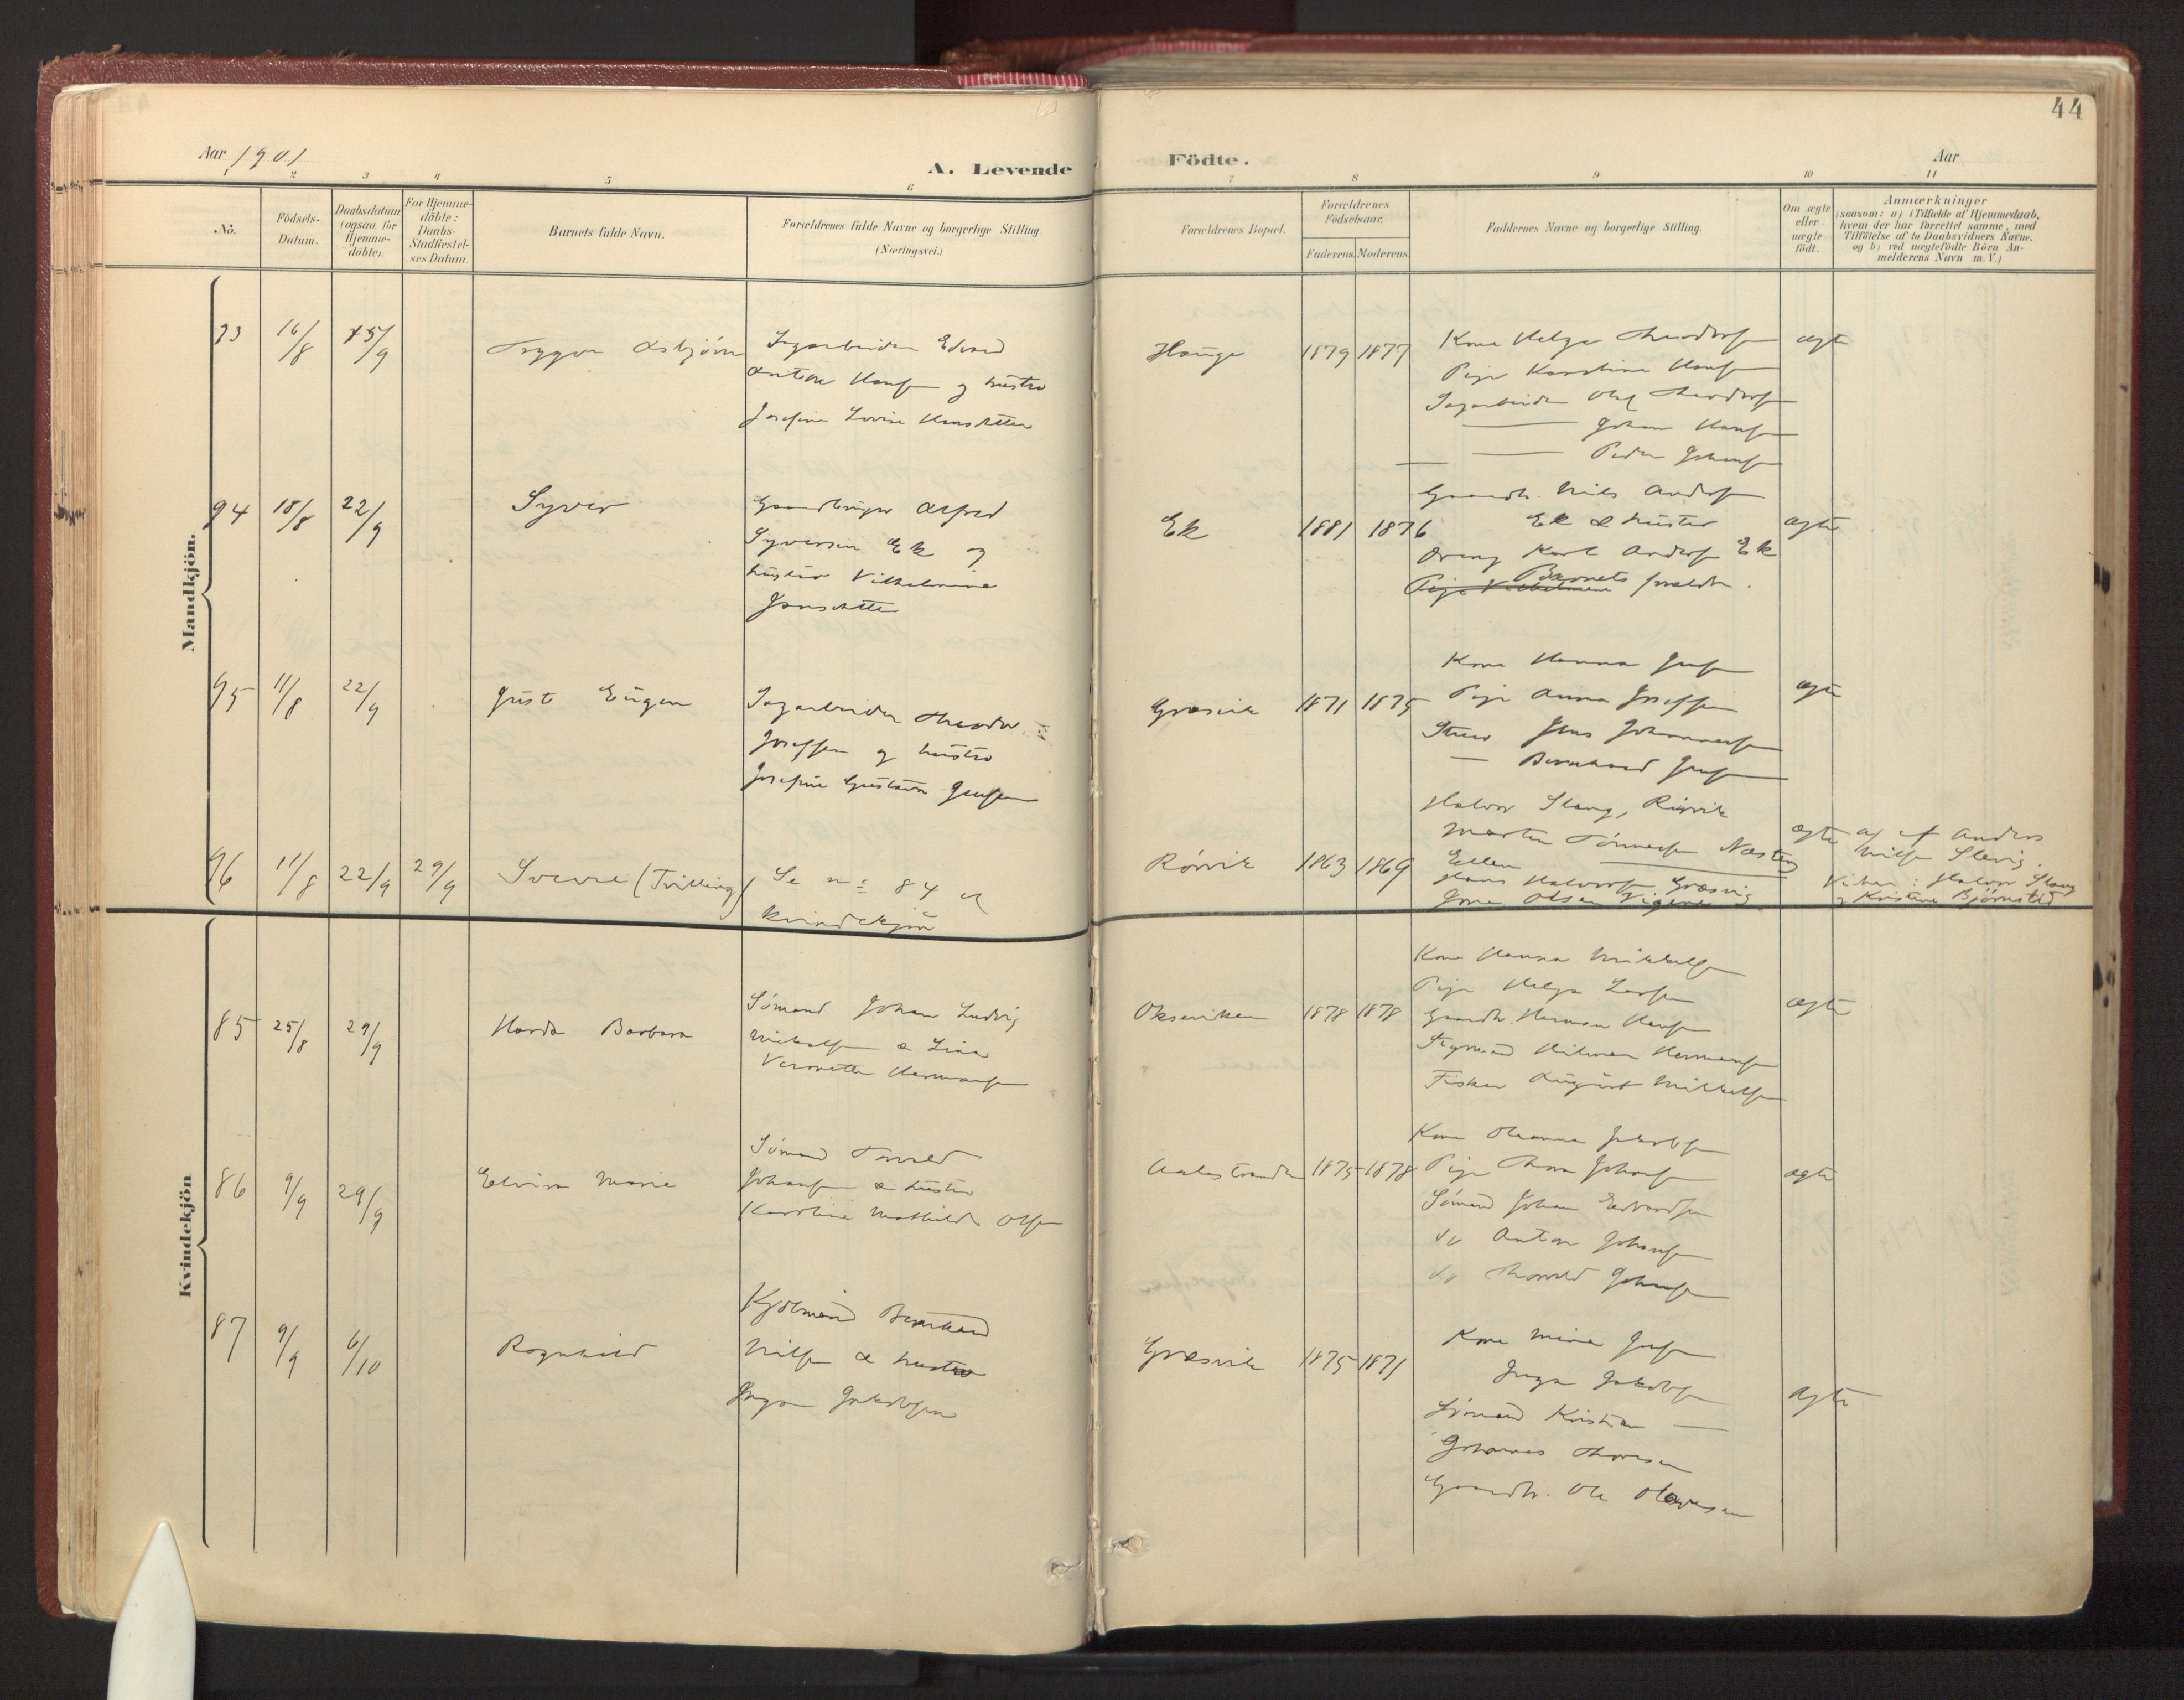 44
Aar 1901
A. Levende
Födte.
Aar
1 2 3 4 5 6 7 8 9 10 11
No.
Födsels-
Datum.
Daabsdatum
(ogsaa for
Hjemme-
döbte).
For Hjemme-
döbte:
Daabs-
Stadfæstel-
ses Datum.
Barnets fulde Navn.
Forældrenes fulde Navne og borgerlige Stilling.
(Næringsvei.)
Forældrenes Bopæl.
Forældrenes
Födselsaar.
Faderens. Moderens.
Faddernes Navne og borgerlige Stilling.
Om ægte
eller
uægte
födt.
Anmærkninger
(saasom: a) i Tilfælde af Hjemmedaab,
hvem der har forrettet samme, med
Tilföielse af to Daabsvidners Navne.
og b) ved uægtefödte Börn An-
melderens Navn m. V.)
Mandkjön.
93 16/8 15/9 Trygve Asbjørn
Sagarbeider Edvard
Anton Hansen og hustru
Josefine Lovise Hansdatter
Hauge 1879 1877
Kone Helga Theodorsen
Pige Karoline Hansen
Sagarbeider Olaf Theodorsen
— Johan Hansen
— — Peder Johansen
ægte
94 18/8 22/9 Syver
Gaardbruger Alfred
Syversen Ek og
hustru Vilhelmine
Jensdatter
Ek 1881 1876
Gaardb. Nils Andersen
Ek & hustru
Dreng Karl Andersen Ek
Pige Vilhelmine Barnets forældre.
ægte
95 11/8 22/9 Just Eugen
Sagarbeider Theodor
Joseffsen og hustru
Josefine Gustava Jensen
Græsvik 1871 1875
Kone Hanna Jensen
Pige Anna Joseffsen
Jens Johannessen
— Bernhard Jensen
ægte
96 11/8 22/9 29/9 Sverre (Tvilling)
Se no: 84 af
kvindekjøn
Rörvik 1863 1869
Halvor Slang, Rörvik
Morten Tönnesen Næsten
Ellen —
Hans Halvorsen Græsvig
Jens Olsen Vigene
ægte
a) af Anders
Nilsen Slevig.
Vidner: Halvor Slang
og Kristine Björnstad
Kvindekjön
85 25/8 29/9 Harda Barbara
Sömand Johan Ludvig
Mikalsen & Lina
Veronette Hermansen
Ökseviken 1878 1878
Kone Hanna Mikkelsen
Pige Helga Larsen
Gaardb. Herman Hansen
Styrmand Hilmar Hermansen
Fisker August Mikkelsen
ægte
86 9/9 29/9 Elvira Marie
Sömand Torvald
Johansen & hustru
Karoline Mathilde Olsen
Aalestranden 1875 1878
Kone Oleanna Jakobsen
Pige Thora Johansen
Sömand Johan Edvardsen
do Anton Johansen
do Thorvald Johansen
ægte
87 9/9 6/10 Ragnhild
Kjölmand Bernhard
Nilsen & hustru
Inga Jakobsen
Græsvik 1875 1871
Kone Mina Jensen
Inga Jakobsen
Sömand Kristian —
Johannes Thoresen
Gaardb. Ole Olavesen
ægte